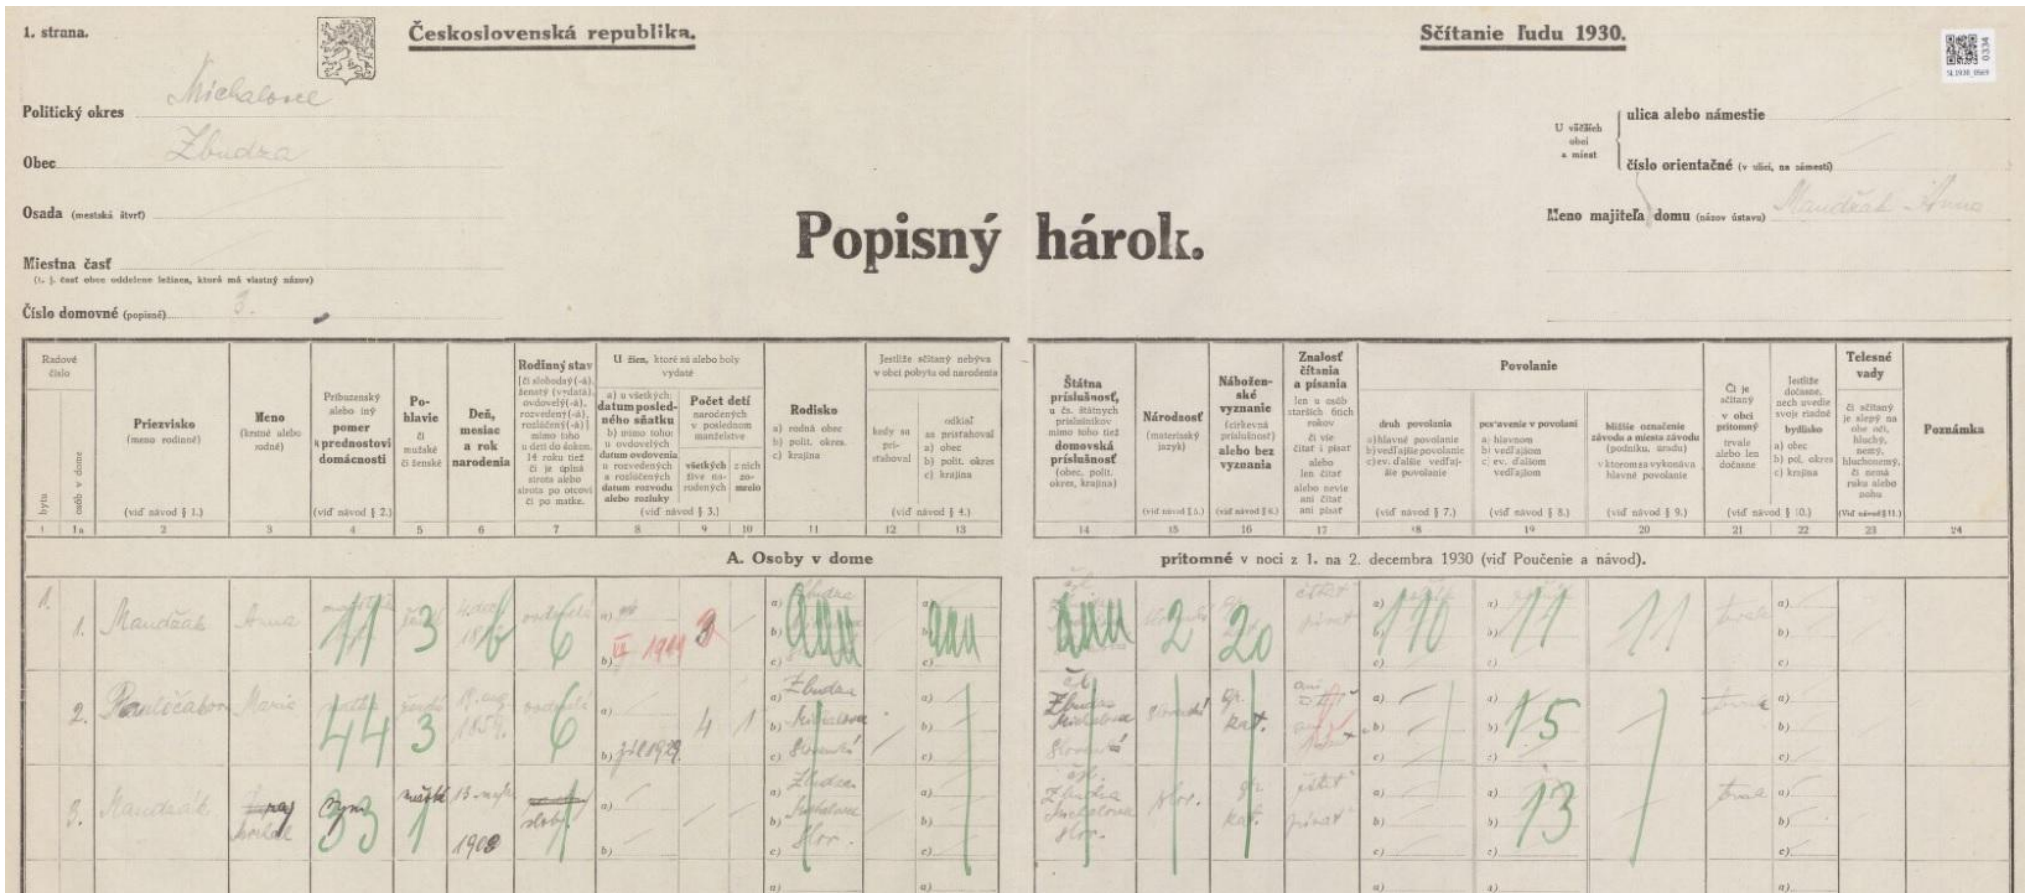 1. strana.
Československá republika.
Sčítanie ľudu 1930.
0334
SL1930_0569
Politický okres Michalovce
Obec Zbudza
Osada (mestská štvrť)
Miestna časť
(t. j. časť obce oddelene ležiaca, ktorá má vlastný názov)
Číslo domovné (popisné) 3.
U väčších
obcí
a miest
ulica alebo námestie
číslo orientačné (v ulici, na námestí)
Meno majiteľa domu (názov ústavu) Mandžák Anna
Popisný hárok.
Radové
číslo
bytu
osôb v dome
Priezvisko
(meno rodinné)
(viď návod § 1.)
Meno
(krstné alebo
rodné)
Príbuzenský
alebo iný
pomer
k prednostovi
domácnosti
(viď návod § 2.)
Po-
hlavie
či
mužské
či ženské
Deň,
mesiac
a rok
narodenia
Rodinný stav
[či slobodný(-á),
ženatý (vydatá),
ovdovelý(-á),
rozvedený(-á),
rozlúčený(-á)]
mimo toho
u detí do dokon.
14 roku tiež
či je úplná
sirota alebo
sirota po otcovi
či po matke.
U žien, ktoré sú alebo boly
vydaté
a) u všetkých:
datum posled-
ného sňatku
b) mimo toho:
u ovdovelých
datum ovdovenia
u rozvedených
a rozlúčených
datum rozvodu
alebo rozluky
Počet detí
narodených
v poslednom
manželstve
všetkých
živé na-
rodených
z nich
zo-
mrelo
(viď návod § 3.)
Rodisko
a) rodná obec
b) polit. okres.
c) krajina
Jestliže sčítaný nebýva
v obci pobytu od narodenia
kedy sa
pri-
sťahoval
odkiaľ
sa prisťahoval
a) obec
b) polit. okres
c) krajina
(viď návod § 4.)
Štátna
príslušnosť,
u čs. štátnych
príslušníkov
mimo toho tiež
domovská
príslušnosť
(obec, polit.
okres, krajina)
Národnosť
(materinský
jazyk)
(viď návod § 5.)
Nábožen-
ské
vyznanie
(cirkevná
príslušnosť)
alebo bez
vyznania
(viď návod § 6.)
Znalosť
čítania
a písania
len u osôb
starších 6tich
rokov
či vie
čítať i písať
alebo
len čítať
alebo nevie
ani čítať
ani písať
Povolanie
druh povolania
a) hlavné povolanie
b) vedľajšie povolanie
c) ev. ďalšie vedľaj-
šie povolanie
(viď návod § 7.)
postavenie v povolaní
a) hlavnom
b) vedľajšom
c) ev. ďalšom
vedľajšom
(viď návod § 8.)
bližšie označenie
závodu a miesta závodu
(podniku, úradu)
v ktorom sa vykonáva
hlavné povolanie
(viď návod § 9.)
Či je
sčítaný
v obci
prítomný
trvale
alebo len
dočasne
Jestliže
dočasne,
nech uvedie
svoje riadne
bydlisko
a) obec
b) pol. okres
c) krajina
(viď návod § 10.)
Telesné
vady
či sčítaný
je slepý na
obe oči,
hluchý,
nemý,
hluchonemý,
či nemá
ruku alebo
nohu
(Viď návod § 11.)
Poznámka
1 1a 2 3 4 5 6 7 8 9 10 11 12 13 14 15 16 17 18 19 20 21 22 23 24
A. Osoby v dome prítomné v noci z 1. na 2. decembra 1930 (viď Poučenie a návod).
1. 1. Mandžák Anna 11 3 6 ovdovelá 6 a) b) VI 1919 3 a) Zbudza b) c) a) b) c) 2 20 čítať písať a) b) 110 c) a) b) 11 c) 11 trvale a) b) c)
2. Marie matka 44 ženské 3 19. aug. 1859. ovdovelá 6 a) b) júl 1929 4 1 a) Zbudza b) Michalovce c) Slovensko a) b) c) čsl. Zbudza Michalovce Slovensko slovenská gr. kat. ani čítať a) b) c) a) b) 15 c) trvale a) b) c)
3. Mandžák Michal syn 33 mužské 1 13. 1908 slob. 1 a) b) a) Zbudza b) Michalovce c) Slov. a) b) c) čsl. Zbudza Michalovce Slov. slov. gr. kat. čítať písať a) b) c) a) b) 13 c) trvale a) b) c)
a) a) a) a) a)